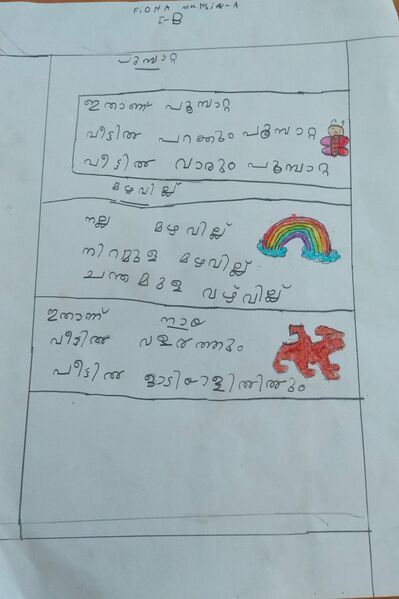 FIONA MUHSIN-A
I-B
പൂമ്പാറ്റ
ഇതാണ് പൂമ്പാറ്റ
വീട്ടിൽ പറക്കും പൂമ്പാറ്റ
വീട്ടിൽ വാരും പൂമ്പാറ്റ
മഴവില്ല്
നല്ല മഴവില്ല്
നിറമുള മഴവില്ല്
ചന്തമുള വഴ്വില്ല്
ഇതാണ് നായ
വീട്ടിൽ വളർത്തും
വീട്ടിൽ